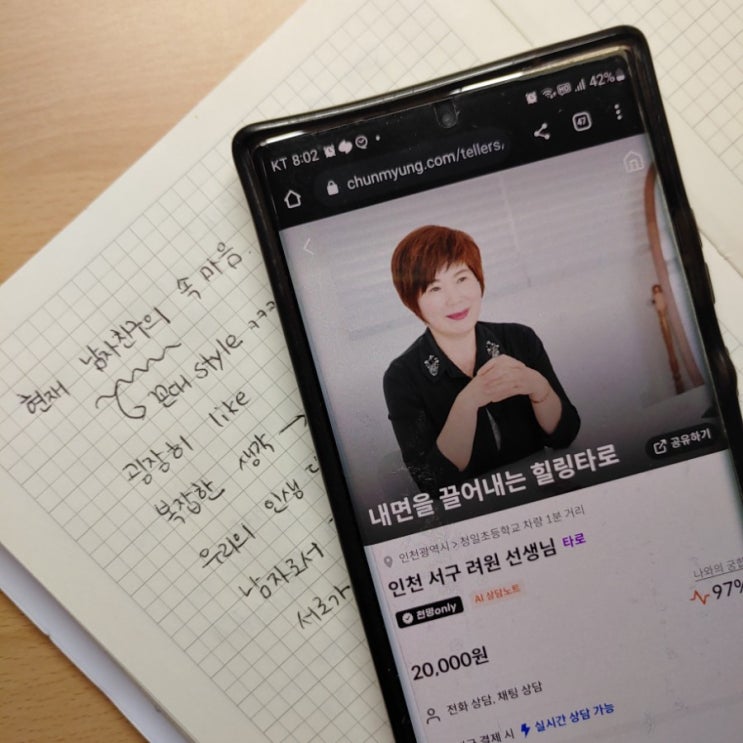 현재 남자친구의 속마음
꼰대 style ㅋㅋㅋ
굉장히 like
복잡한 생각 →
우리의 인생
남자로서
서로가
KT 8:02
42%
chunmyung.com/tellers
47
공유하기
내면을 끌어내는 힐링타로
인천광역시 > 청일초등학교 차량 1분 거리
인천 서구 려원 선생님 타로
천명only AI 상담노트
나와의 궁합
97%
20,000원
전화 상담, 채팅 상담
결제 시 실시간 상담 가능